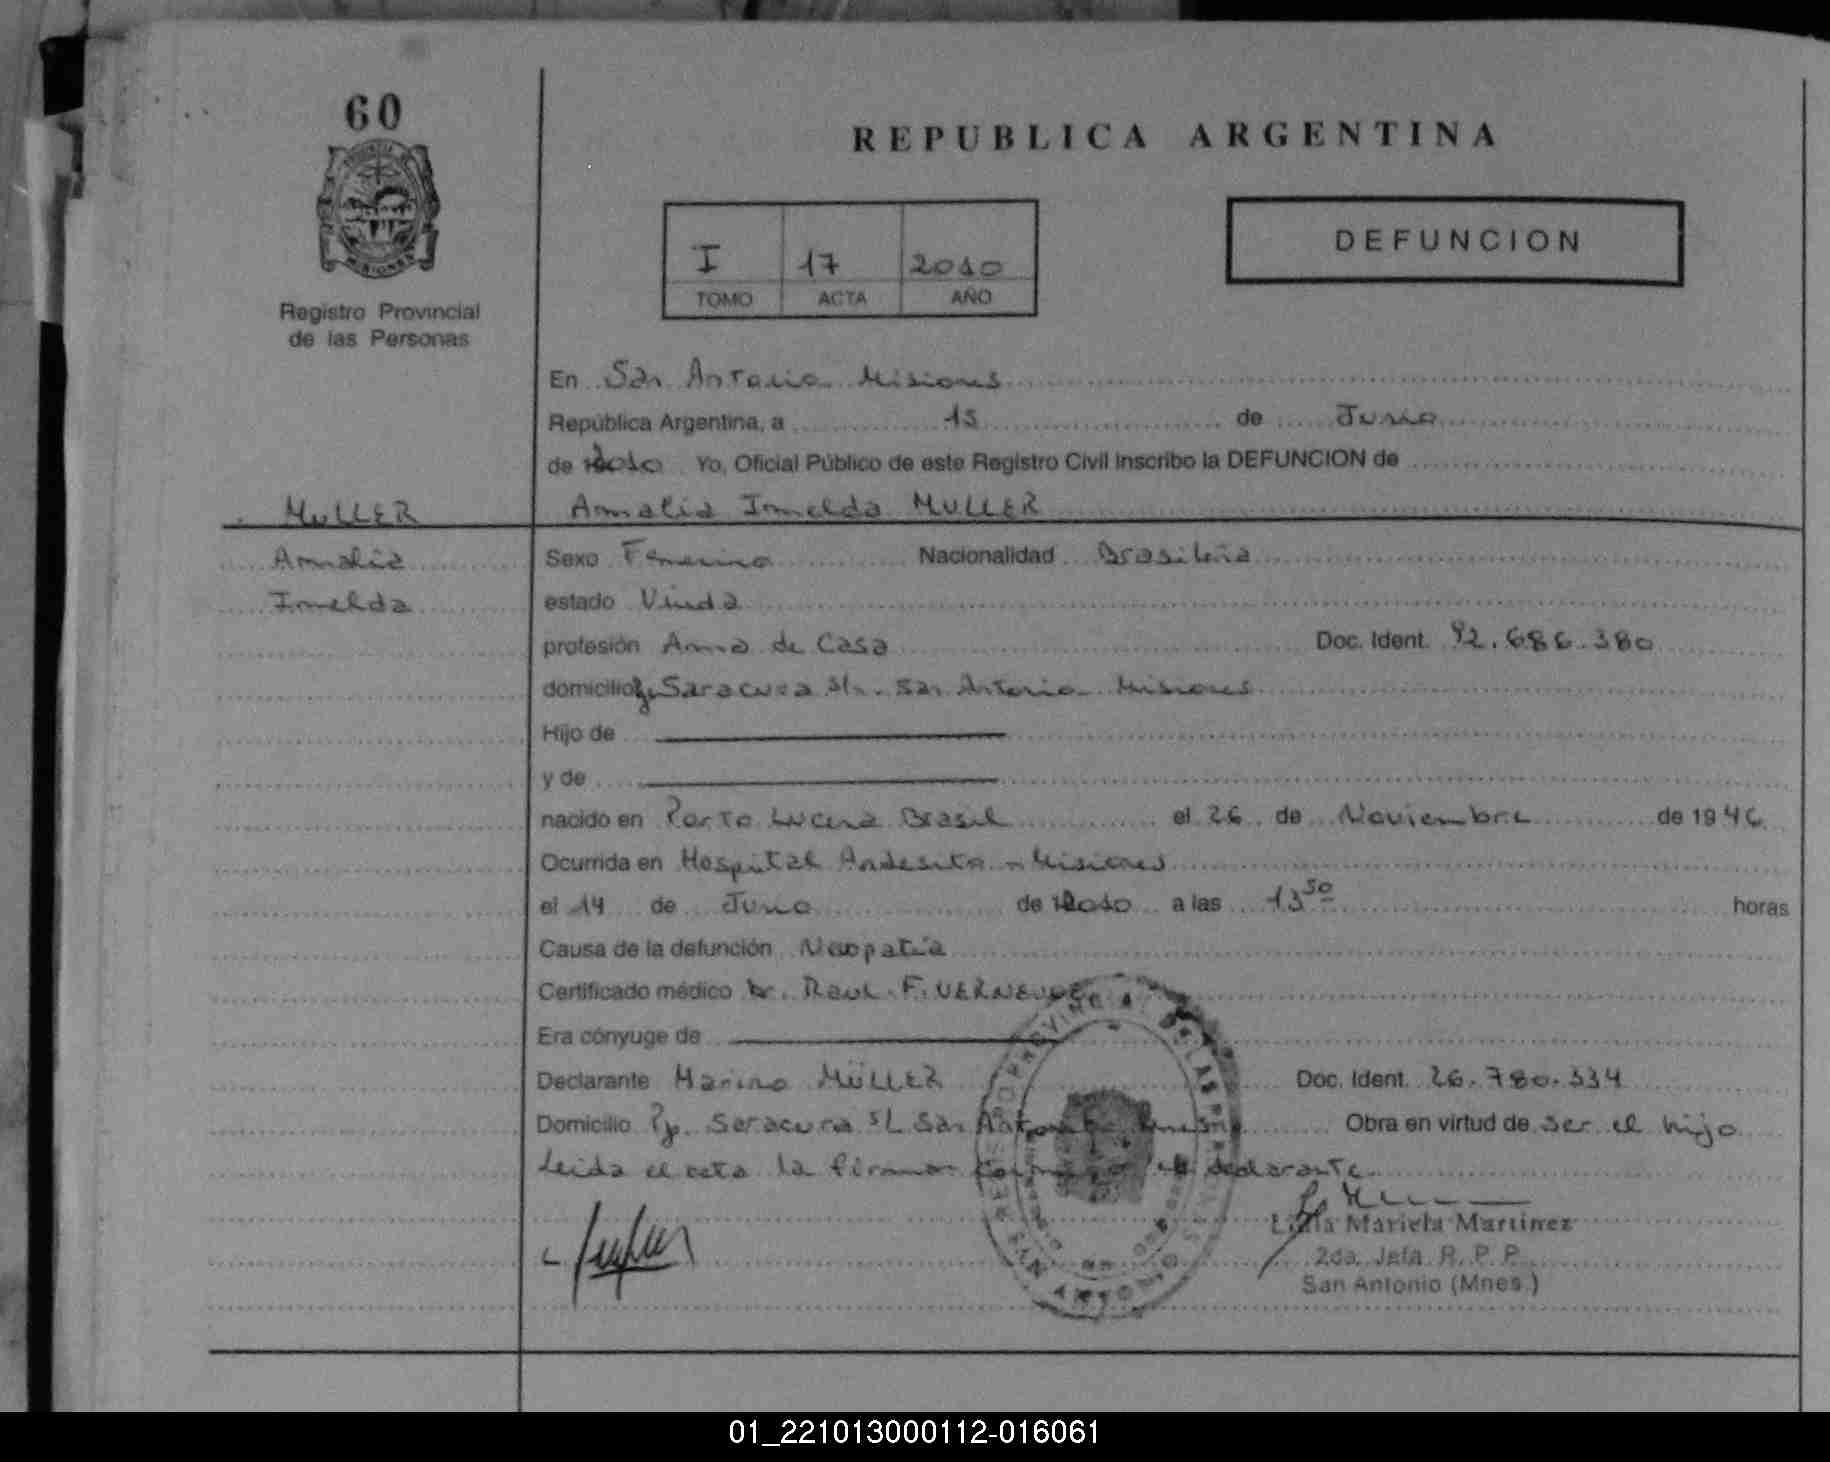 60
REPUBLICA ARGENTINA
DEFUNCION
I 17 2010
TOMO ACTA AÑO
Registro Provincial
de las Personas
En San Antonio Misiones
República Argentina, a 15 de Junio
de 2010 Yo, Oficial Público de este Registro Civil inscribo la DEFUNCION de
MULLER Amalia Imelda MULLER
Amalia Sexo Femenino Nacionalidad Brasileña
Imelda estado Viuda
profesión Ama de Casa Doc. Ident. 92.686.380
domicilio Pje Saracura s/n. San Antonio Misiones
Hijo de
y de
nacido en Porto Lucena Brasil el 26 de Noviembre de 1946
Ocurrida en Hospital Andresito Misiones
el 14 de Junio de 2010 a las 13 50 horas
Causa de la defunción
Certificado médico Dr. Raul F.
Era cónyuge de
Declarante Marino MÜLLER Doc. Ident. 26.780.334
Domicilio Pje. Saracura San Obra en virtud de ser el hijo
Leida el acta la firman declarante
Mariela Martinez
2da. Jefa R. P. P.
San Antonio (Mnes.)
01_221013000112-016061